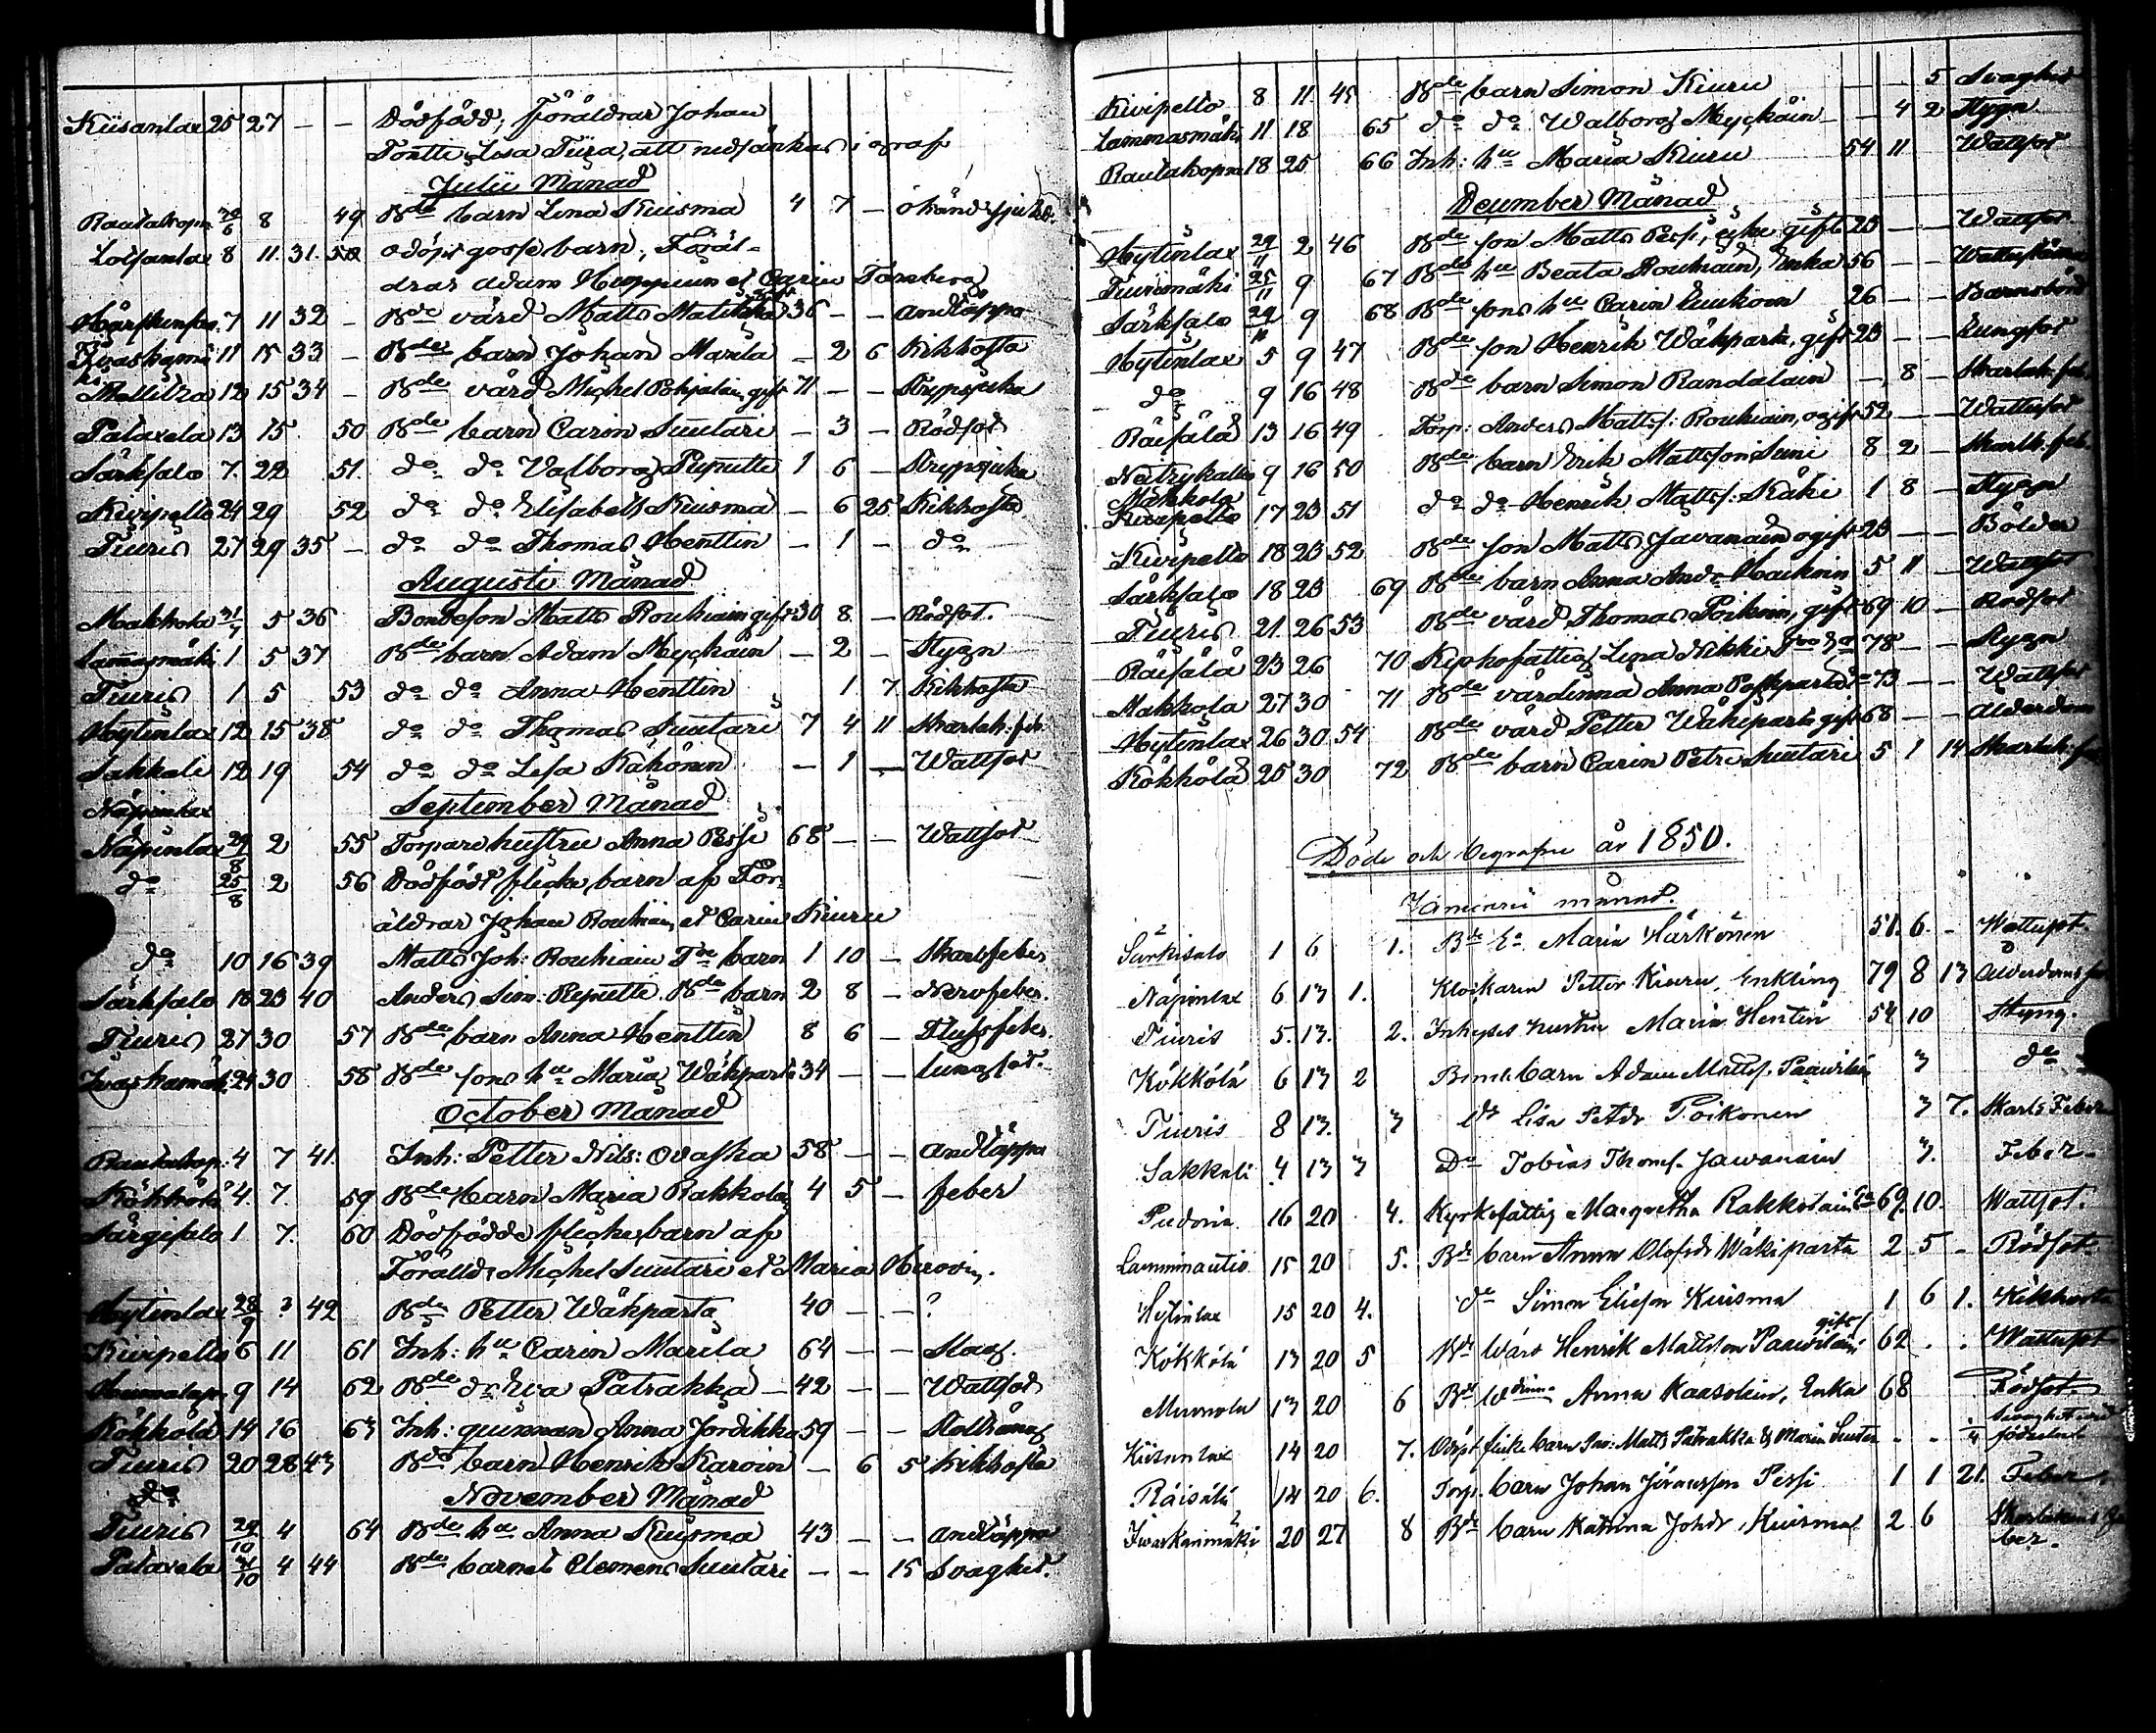 Kiisanlax 25 27 — — Dödfödd; Föräldrar Johan
Tontti Lisa Tuira, att nedsänkas i graf
Julii Månad
Rautakopm 30/6 8 49 Bde barn Lena Kuisma 4 7 — okänd sjukd.
Loisanlax 8 11. 31. 50 odöpt gosse barn, Föräl-
drar Adam Huppuin et Carin Torsberg
7 11 32 — Bde värd Matts 36 — — Andtäppa
11 15 33 — Bde barn Johan Marila — 2 6 Kikhosta
12 15 34 — Bde värd Michel Pohjalain gift 71 — — Strypsjuka
Pataxela 13 15 50 Bde barn Carin Suutari — 3 — Rödsot
Särksalo 7. 22 51. do do Valborg Piputti 1 6 — Strypsjuka
Kivipelto 24 29 52 do do Elisabeth Kuisma — 6 25 Kikhosta
Tiuris 27 29 35 — do do Thomas Henttin — 1 — do
Augusti Månad
Makkola 31/7 5 36 Bondeson Matts Rouhiain gift 30 8 — Rödsot.
Lammasmäki 1 5 37 Bde barn Adam Myckäin — 2 — Stygn
Tiuris 1. 5 53 do do Anna Henttin 1. 7. Kikhosta
Hytinlax 12 15 38 do do Thomas Suutari 7 4 11 Skarlak: feb
Sakkali 12 19 54 do do Lisa Kähönen — 1 — Wattsot
Näpinlax
September Månad
Näpinlax 29/8 2 55 Torpare hustru Anna Pessi 68 — — Wattsot
do 25/8 2 56 Dödfödt flicke barn af För-
äldrar Johan Rouhiain et Carin Kiuru
do 10 16 39 Matts Joh: Rouhiain Tre barn 1 10 — Skarlfeber
Särksalo 18 23 40 Anders Sim: Piputti Bde barn 2 8 — Nervfeber.
Tiuris 27 30 57 Bde barn Anna Henttin 8 6 — Flussfeber.
Ivaskamäki 24 30 58 Bde sons hu Maria Wäkiparta 34 — — lungsot.
October Månad
Rautakop. 4 7 41. Inh: Petter Nils: Ovaska 58 — — Andtäppa
Kökkölä 4. 7. 59 Bde barn Maria Rakkolain 4 5 — feber
Särgisalo 1 7. 60 Dödfödde flicke barn af
Föräldr Michel Suutari et Maria Hirvoin.
Hytinlax 28/9 ? 42 Bde Petter Wäkparta 40 — — ?
Kivipelto 6 11 61 Inh: hu Carin Marila 64 — — Slag.
9 14 62 Bde do Eva Patrakka — 42 — — Wattsot
Kökkölä 14 16 63 Inh: quinnan Anna Jordikka 59 — — Hålltång
Tiuris 20 28 43 Bde barn Henrik Karvin — 6 5 Kikhosta
do
November Månad
Tiuris 29/10 4 64 Bde hu Anna Kuisma 43 — — Andtäppa
Pataxela 31/10 4 44 Bde barnet Clemens Suutari — — 15 Svaghet.
Kivipelto 8 11. 45 Bde barn Simon Kiuru — — 5 Svaghet
Lammasmäki 11 18 65 do do Walborg Myckäin — 4 2 Stygn
Rautakopm 18 25 66 Inh: hu Maria Kiuru 54 11 Wattsot
December Månad
Hytinlax 29/11 2 46 Bde son Matts Pessi, icke gift 23 — — Wattsot
Tiurinmäki 25/11 9 67 Bde hu Beata Rouhiain, Enka 56 — — Wattusot
Särksalo 29/11 9 68 Bde sons hu Carin 26 — — Barnsbörd
Hytinlax 5 9 47 Bde son Henrik Wäkparta, gift 23 — — Lungsot
do 9 16 48 Bde barn Simon Randalain — 8 — Skarlak: feb.
Räisälä 13 16 49 Torp: Anders Matts: Rouhiain, ogift 52 — — Wattusot
9 16 50 Bde barn Erik Mattsson Suni 8 2 — Skarlk. feb.
Makkola
Kivipelto 17 23 51 do do Henrik Matts: Käki 1 8 — Stygn
Kivipelto 18 23 52 Bde son Matts Javanain ogift 23 — — Bölder
Särksalo 18 23 69 Bde barn Anna Andr Haikoin 5 11 — Wattsot
Tiuris 21. 26 53 Bde värd Thomas Poikoin, gift 69 10 — Rödsot
Räisälä 23 26 70 Kyrkofattig Lena Nikki 78 — — Stygn
Makkola 27 30 71 Bde värdinna Anna Posparta 73 — — Wattsot
Hytinlax 26 30 54 Bde värd Petter Wäkiparta gift 68 — — Ålderdom
Kökkölä 25 30 72 Bde barn Carin Petri Suutari 5 1 14 Skarlak: feb
Döde och begrafne år 1850.
Januarii månad.
Särkisalo 1 6 1. Bde Ea Maria Härkönen 51. 6. — Wattusot.
Näpinlax 6 13 1. Klockaren Petter Kiuru, Enkling 79 8 13 Ålderdoms
Tiuris 5. 13. 2. Inhyses hustru Maria Hentin 54 10 Styng.
Kökkölä 6 13 2 Bonde barn Adam Matts. 3 do
Tiuris 8 13. 3 do Lisa Petdr Poikonen 3 7. Skarls Feber
Sakkali 4 13 3 Do Tobias Thomss. Jawanain 3. Feber.
Pudoria 16 20 4. Kyrkofattig Margretha Rakkolain Ea 69. 10. Wattsot.
Lamminautio 15 20 5. Bde barn Anna Olofsdr Wäkiparta 2 5 — Rödsot.
Hytinlax 15 20 4. do Simon Eliesn Kuisma 1 6 1. Kikhosta
gift
Kökkölä 13 20 5 Bde Wärd Henrik Mattsson 62 . . Wattusot
Miinola 13 20 6 Bde Wdinna Anna Kaasolain, Enka 68 Rödsot.
Kiisanlax 14 20 7. Odöpt flicke barn Inv: Matts Patrakka & Maria Suutari - - 1/4 Svaghet vid födseln
Räisälä 14 20 6. Torp. barn Johan Göransson Pessi 1 1 21. Feber.
Ivaskanmäki 20 27 8 Bde barn Katrina Johdr Kuisma 2 6 Skarlakans Fe
ber.